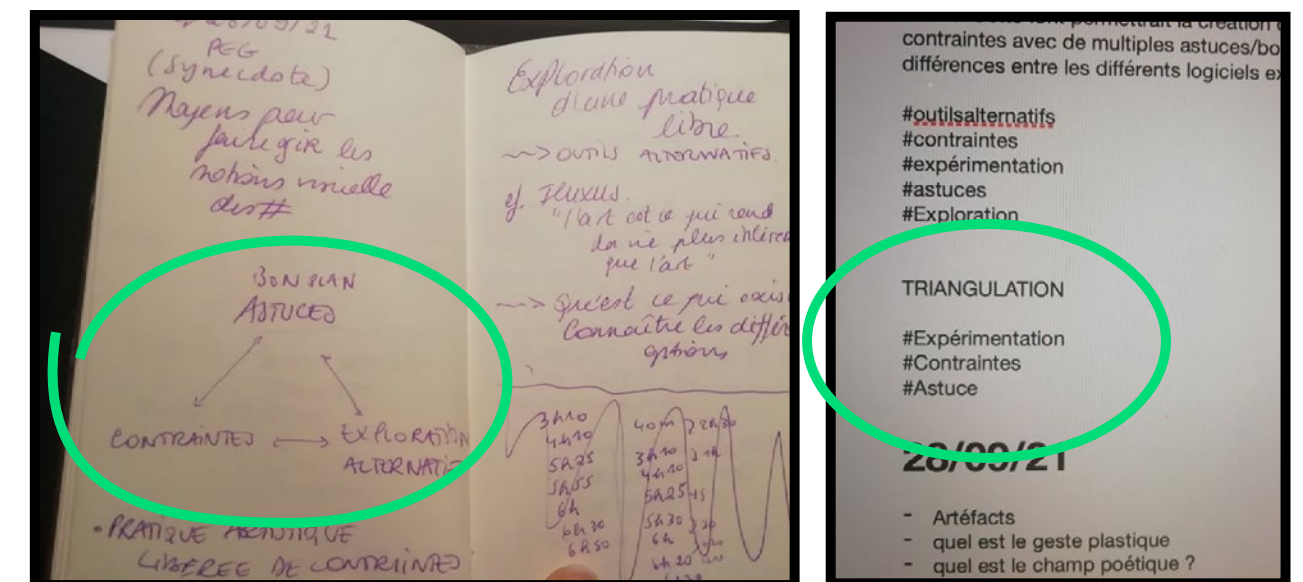 28/09/21
PEG
(Synecdote)
Moyens pour
faire agir les
notions
des #
BON PLAN
ASTUCES
CONTRAINTES
EXPLORATION
ALTERNATI
• PRATIQUE ARTISTIQUE
LIBEREE DE CONTRAINTES
Exploration
d'une pratique
libre.
~~> OUTILS ALTERNATIFS.
cf. Fluxus.
"l'art est ce qui rend
la vie plus intéres
que l'art"
~~> Qu'est ce qui exis
Connaître les différ
options
3h10
4h10
5h25
5h55
6h
6h30
6h50
40m
3h10
4h10
5h25
5h30
6h
6h20
permettrait la création
contraintes avec de multiples astuces/bo
différences entre les différents logiciels ex
#outilsalternatifs
#contraintes
#expérimentation
#astuces
#Exploration
TRIANGULATION
#Expérimentation
#Contraintes
#Astuce
28/09/21
- Artéfacts
- quel est le geste plastique
- quel est le champ poétique ?